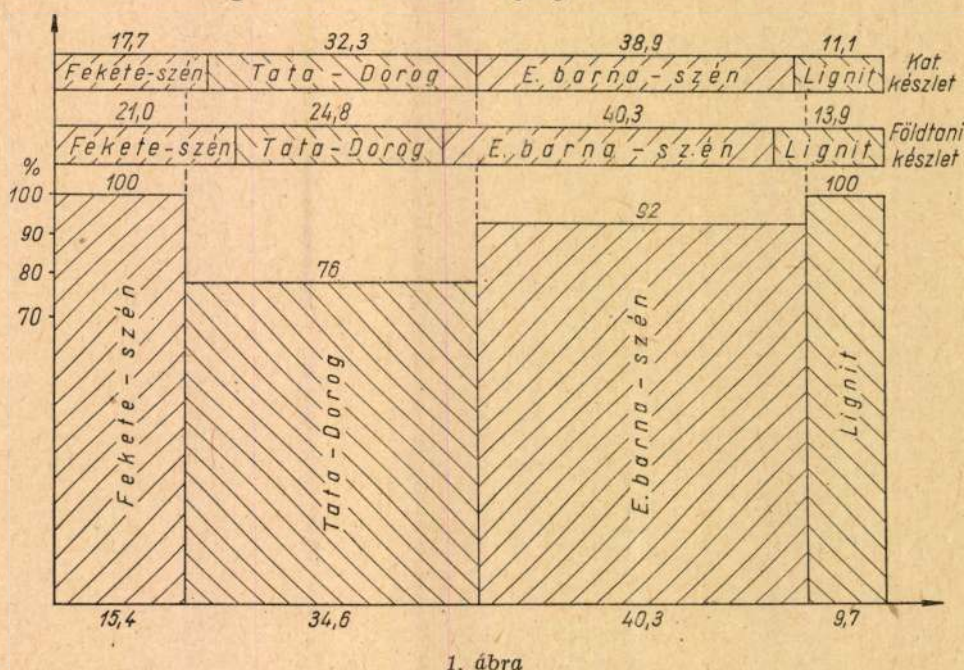 17,7 32,3 38,9 11,1
Fekete-szén Tata-Dorog E. barna-szén Lignit Kat. készlet
21,0 24,8 40,3 13,9
Fekete-szén Tata-Dorog E. barna-szén Lignit Földtani készlet
%
100 92 100
100
90
76
80
70
Fekete-szén
Tata-Dorog
E. barna-szén
Lignit
15,4 34,6 40,3 9,7
1. ábra